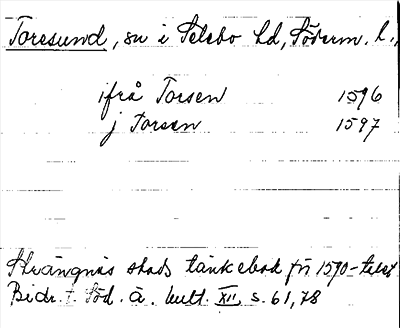 Toresund, sn i Selebo hd, Söderm. l.,
ifrå Torsen 1596
j Torsen 1597
Strängnäs stads tänkebok för 1590-talet
Bidr. t. Söd. ä. kult. XII, s. 61, 78